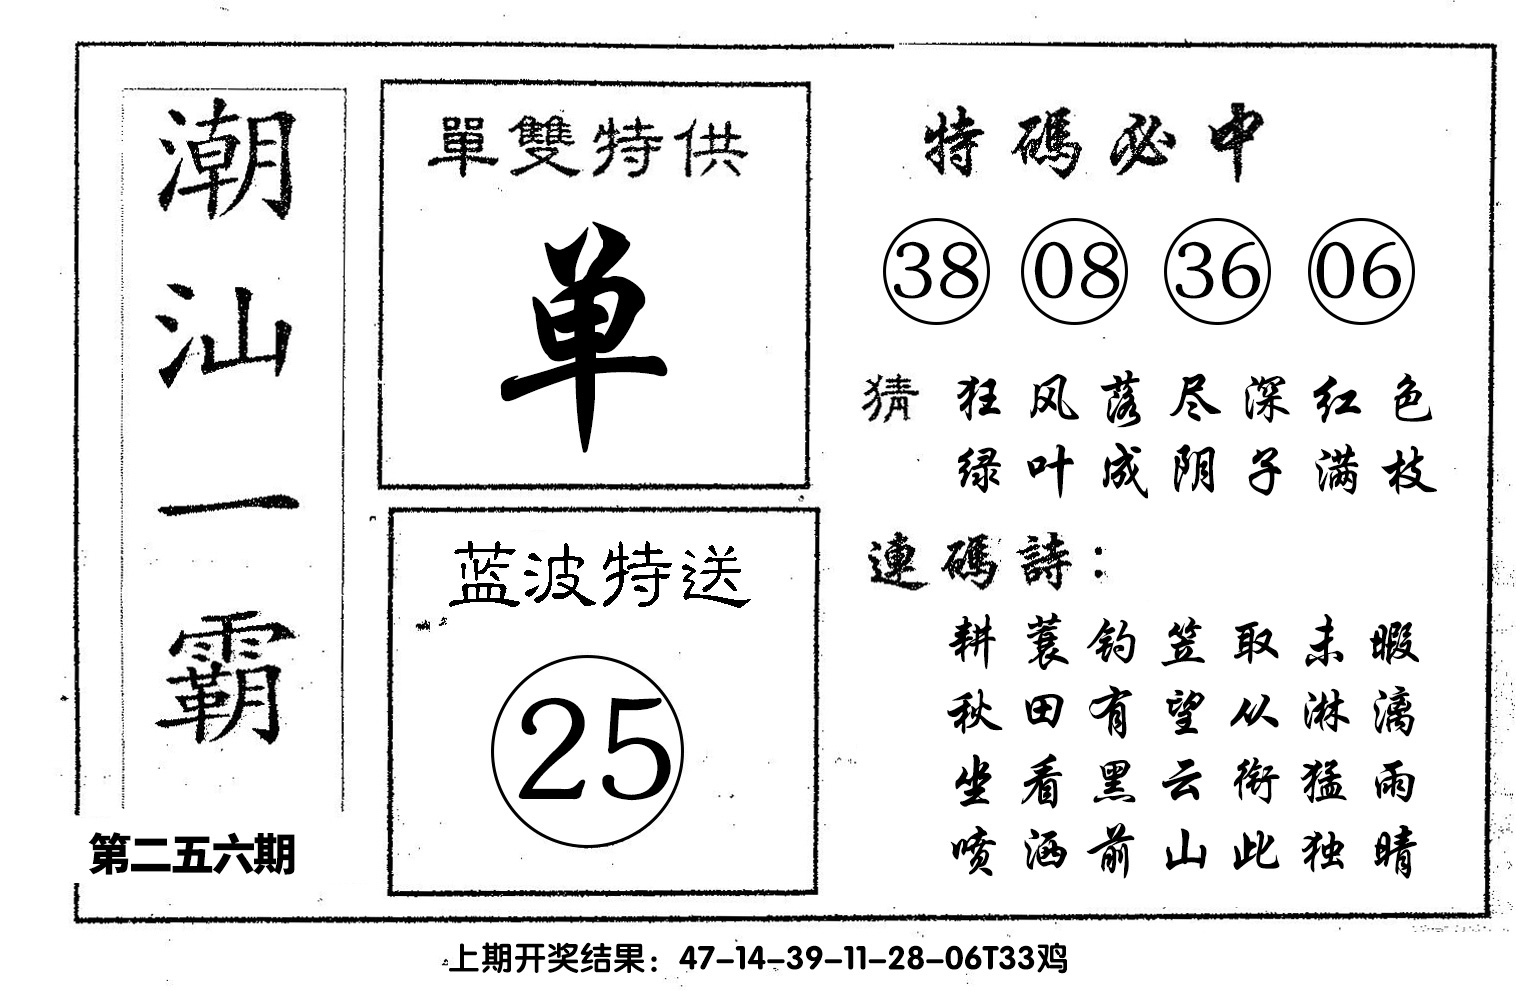 潮汕一霸
第二五六期
單雙特供
单
蓝波特送
25
特碼必中
38 08 36 06
猜 狂风落尽深红色
绿叶成阴子满枝
連碼詩：
耕蓑钓笠取未暇
秋田有望从淋漓
坐看黑云衔猛雨
喷洒前山此独晴
上期开奖结果：47-14-39-11-28-06T33鸡